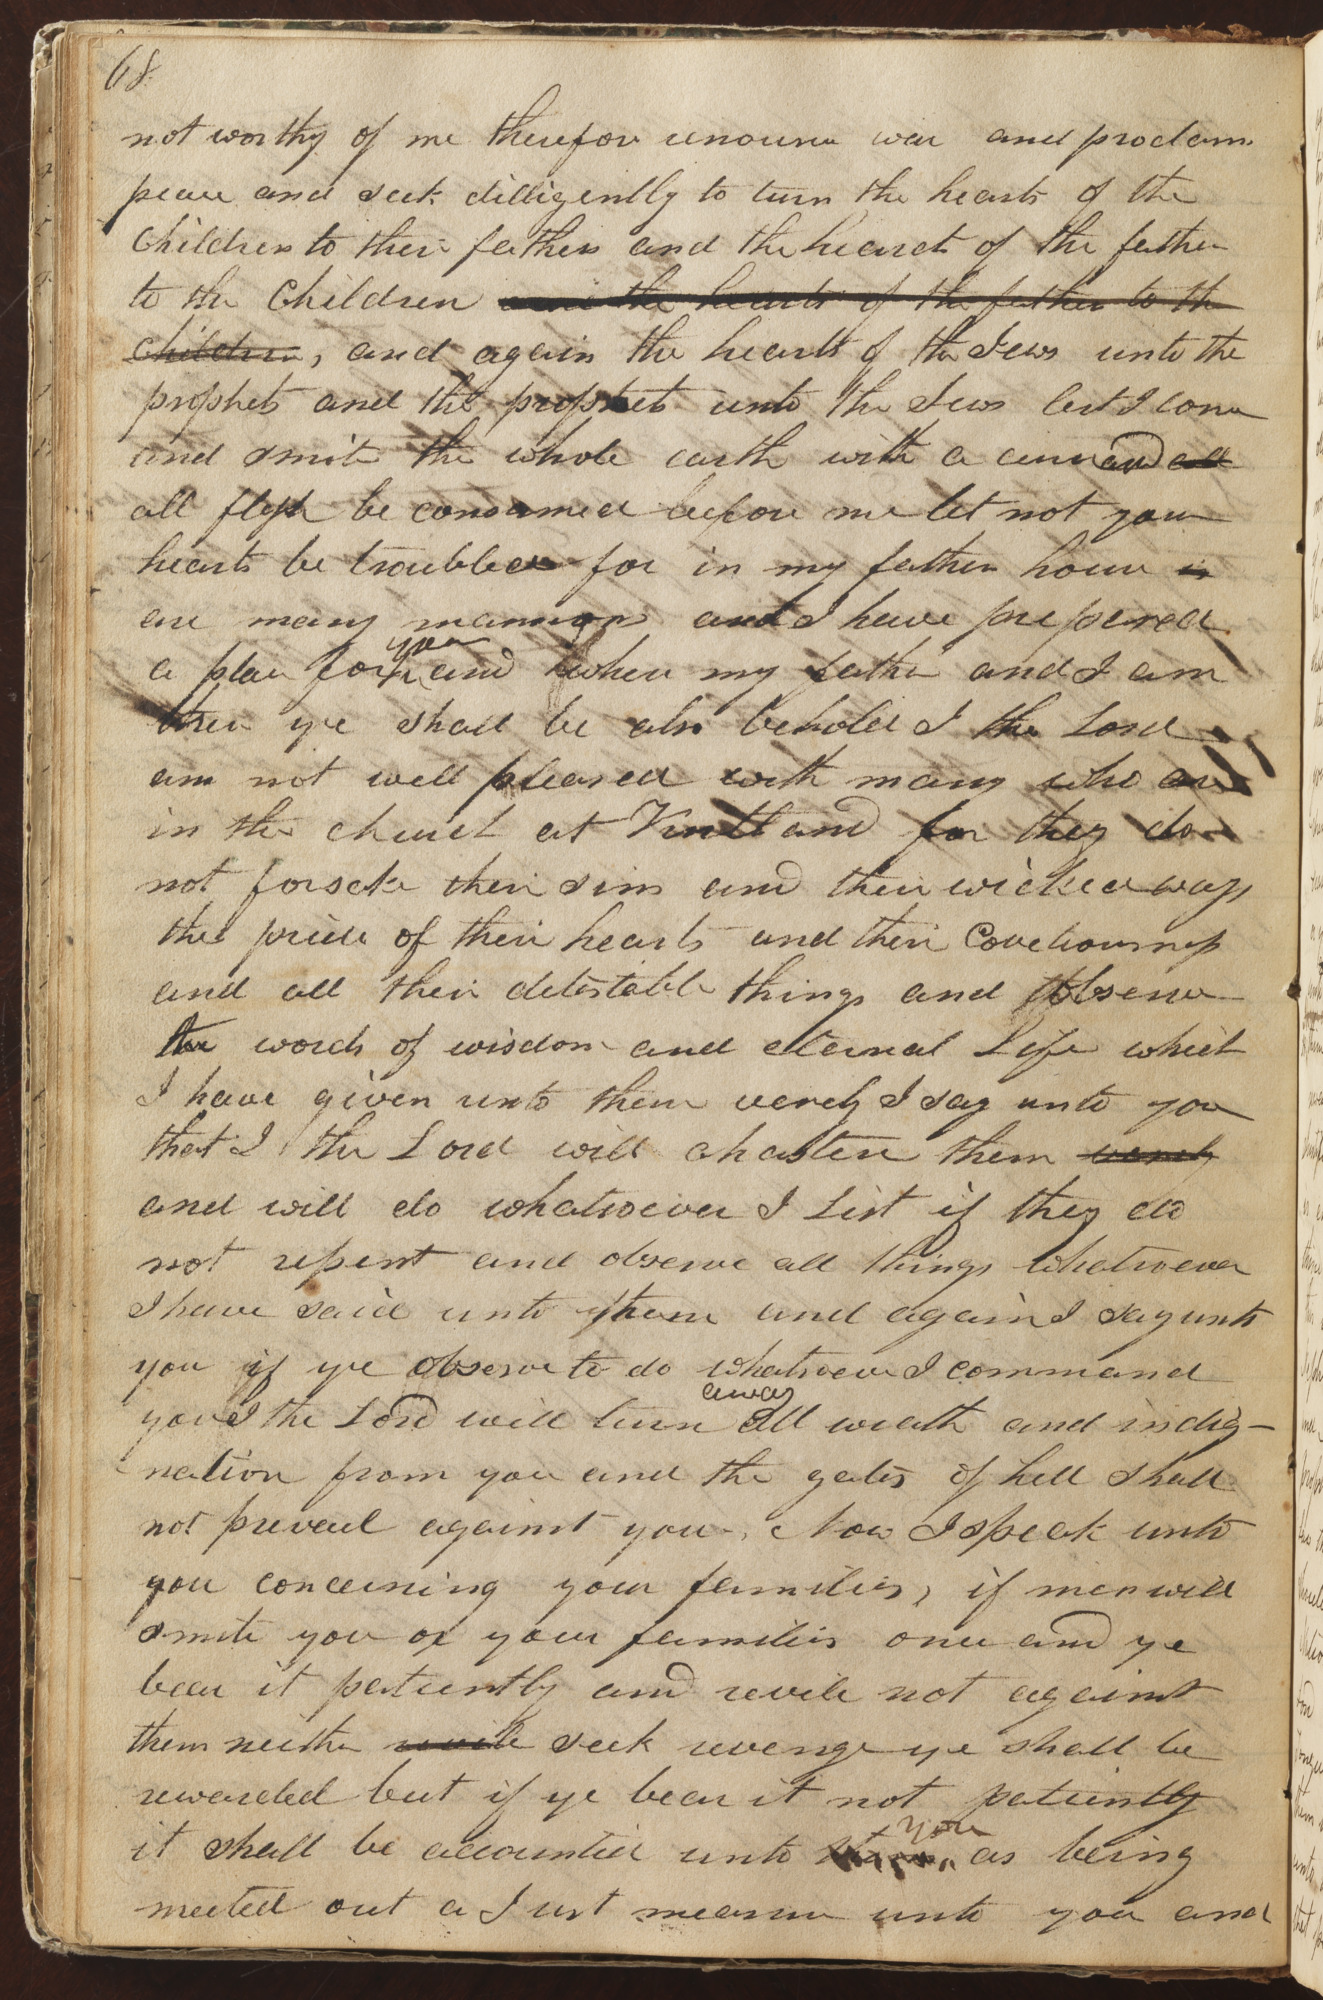 68
not worthy of me therefore renounce war and proclaim
peace and seek dilligently to turn the hearts of the
Children to their fathers and the hearts of the father
to the Children and the hearts of the father to the
Children, and again the hearts of the Jews unto the
prophets and the prophets unto the Jews lest I come
and smite the whole earth with a curse and all
all flesh be consumed before me let not your
hearts be troubled for in my fathers house is
are many mansions and I have prepared
you
a place for and where my father and I am
there ye shall be also behold I the Lord
am not well pleased with many who are
in the church at Kirtland for they do
not forsake their sins and their wicked ways
the pride of their hearts and their Coveteousness
and all their detestable things and observe
the words of wisdom and eternal Life which
I have given unto them verely I say unto you
that I the Lord will chasten them verely
and will do whatsoever I List if they do
not repent and observe all things whatsoever
I have said unto them and again I say unto
you if ye observe to do whatsoever I command
away
you I the Lord will turn all wrath and indig-
nation from you and the gates of hell shall
not prevail against you. Now I speak unto
you concerning your families, if men will
smite you or your families once and ye
bear it patiently and revile not against
them neither revile seek revenge ye shall be
rewarded but if ye bear it not patiently
you
it shall be accounted unto as being
meeted out a Just measure unto you and